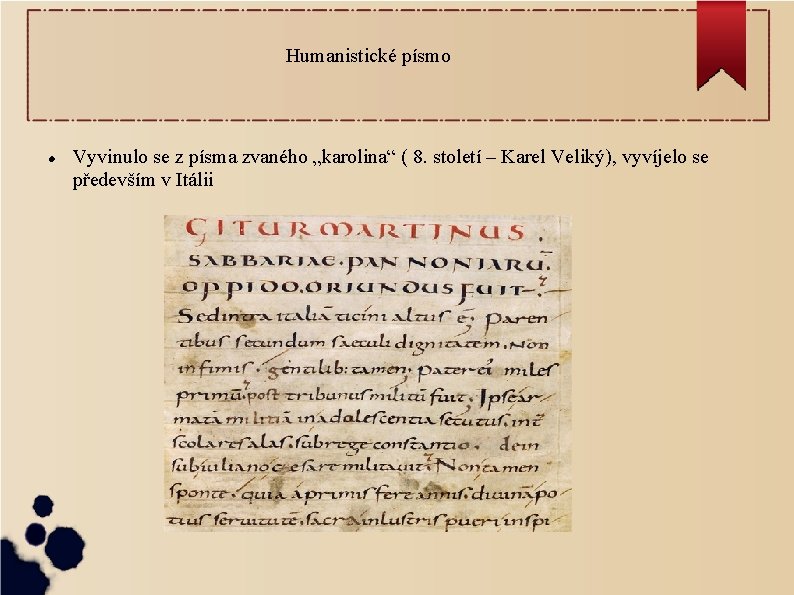 Humanistické písmo
Vyvinulo se z písma zvaného „karolina“ ( 8. století – Karel Veliký), vyvíjelo se
především v Itálii
GITUR MARTINUS .
SABBARIAE · PANNONIARŪ.
OPPIDO. ORIUNDUS FUIT
Sed intra italiā ticini altus ē. paren
tibus secundum saeculi dignitatem. non
infimis. gentilib: tamen. pater ei miles
primū. post tribunus militū fuit. Ipse ar
matā militiā in adolescentia secutus. int
scolares alas. sub rege constantio. dein
sub iuliano caesare militavit. Non tamen
sponte. quia a primis fere annis. divinā po
tius servitutē. sacra inlustris pueri inspi